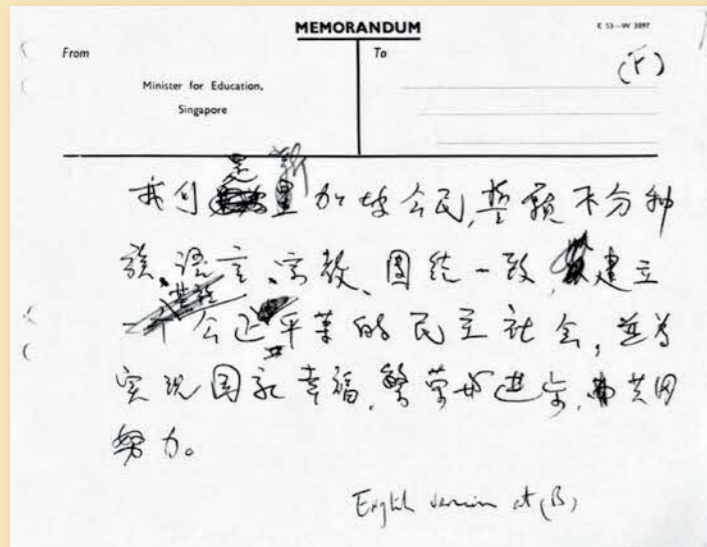 MEMORANDUM
E 53—W 3097
From
To
(F)
Minister for Education,
Singapore
是 新
我们星加坡公民,誓愿不分种
族、语言、宗教、团结一致,建立
公正平等的民主社会,並为
实现国家幸福,繁荣与进步,共同
努力。
English version at (B)